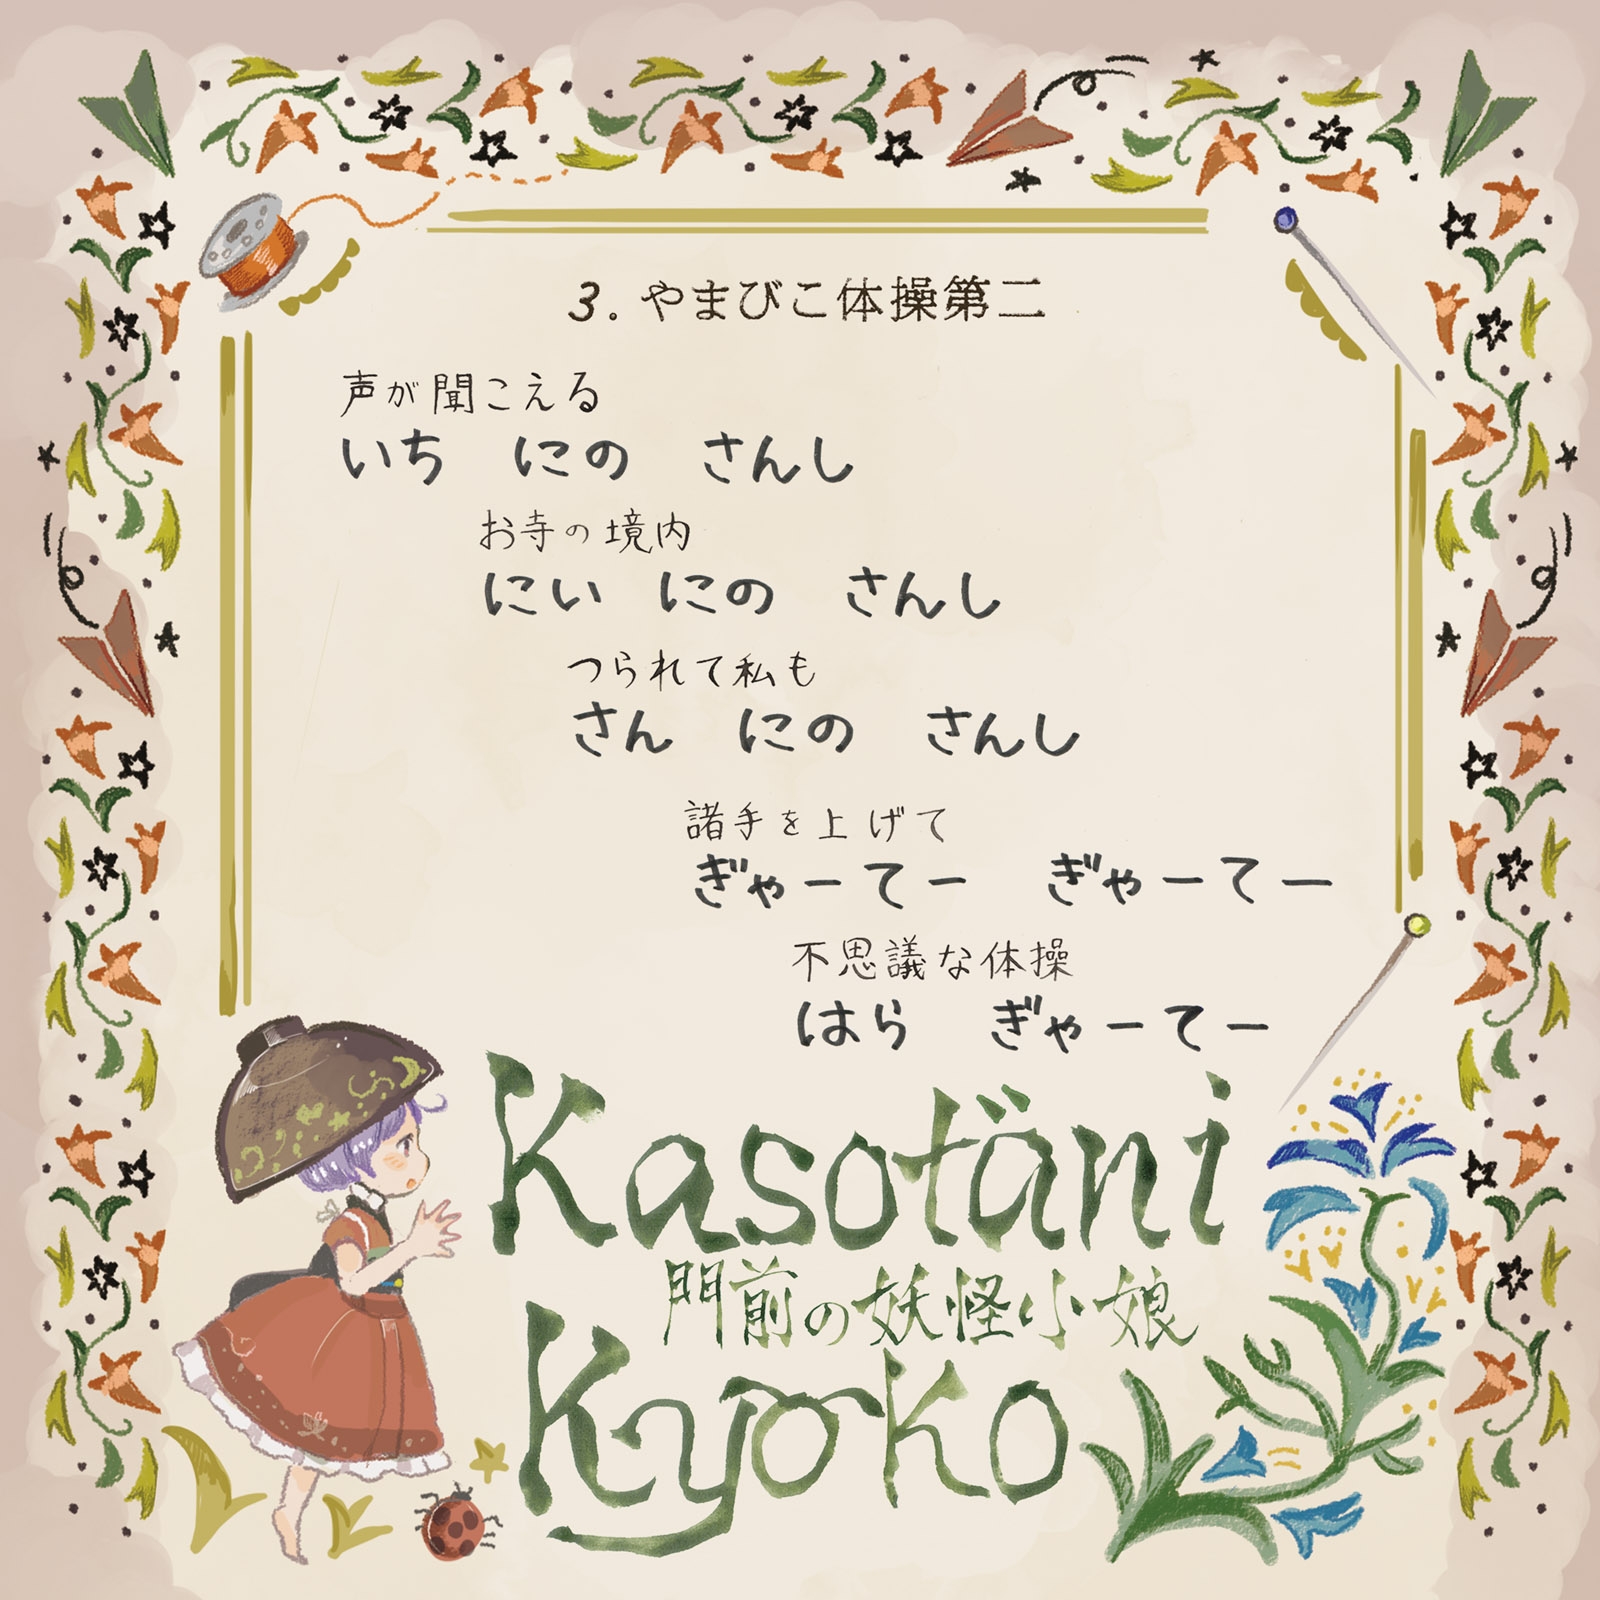 3. やまびこ体操第二
声が聞こえる
いち にの さんし
お寺の境内
にい にの さんし
つられて私も
さん にの さんし
諸手を上げて
ぎゃーてー ぎゃーてー
不思議な体操
はら ぎゃーてー
Kasotani
門前の妖怪小娘
Kyoko